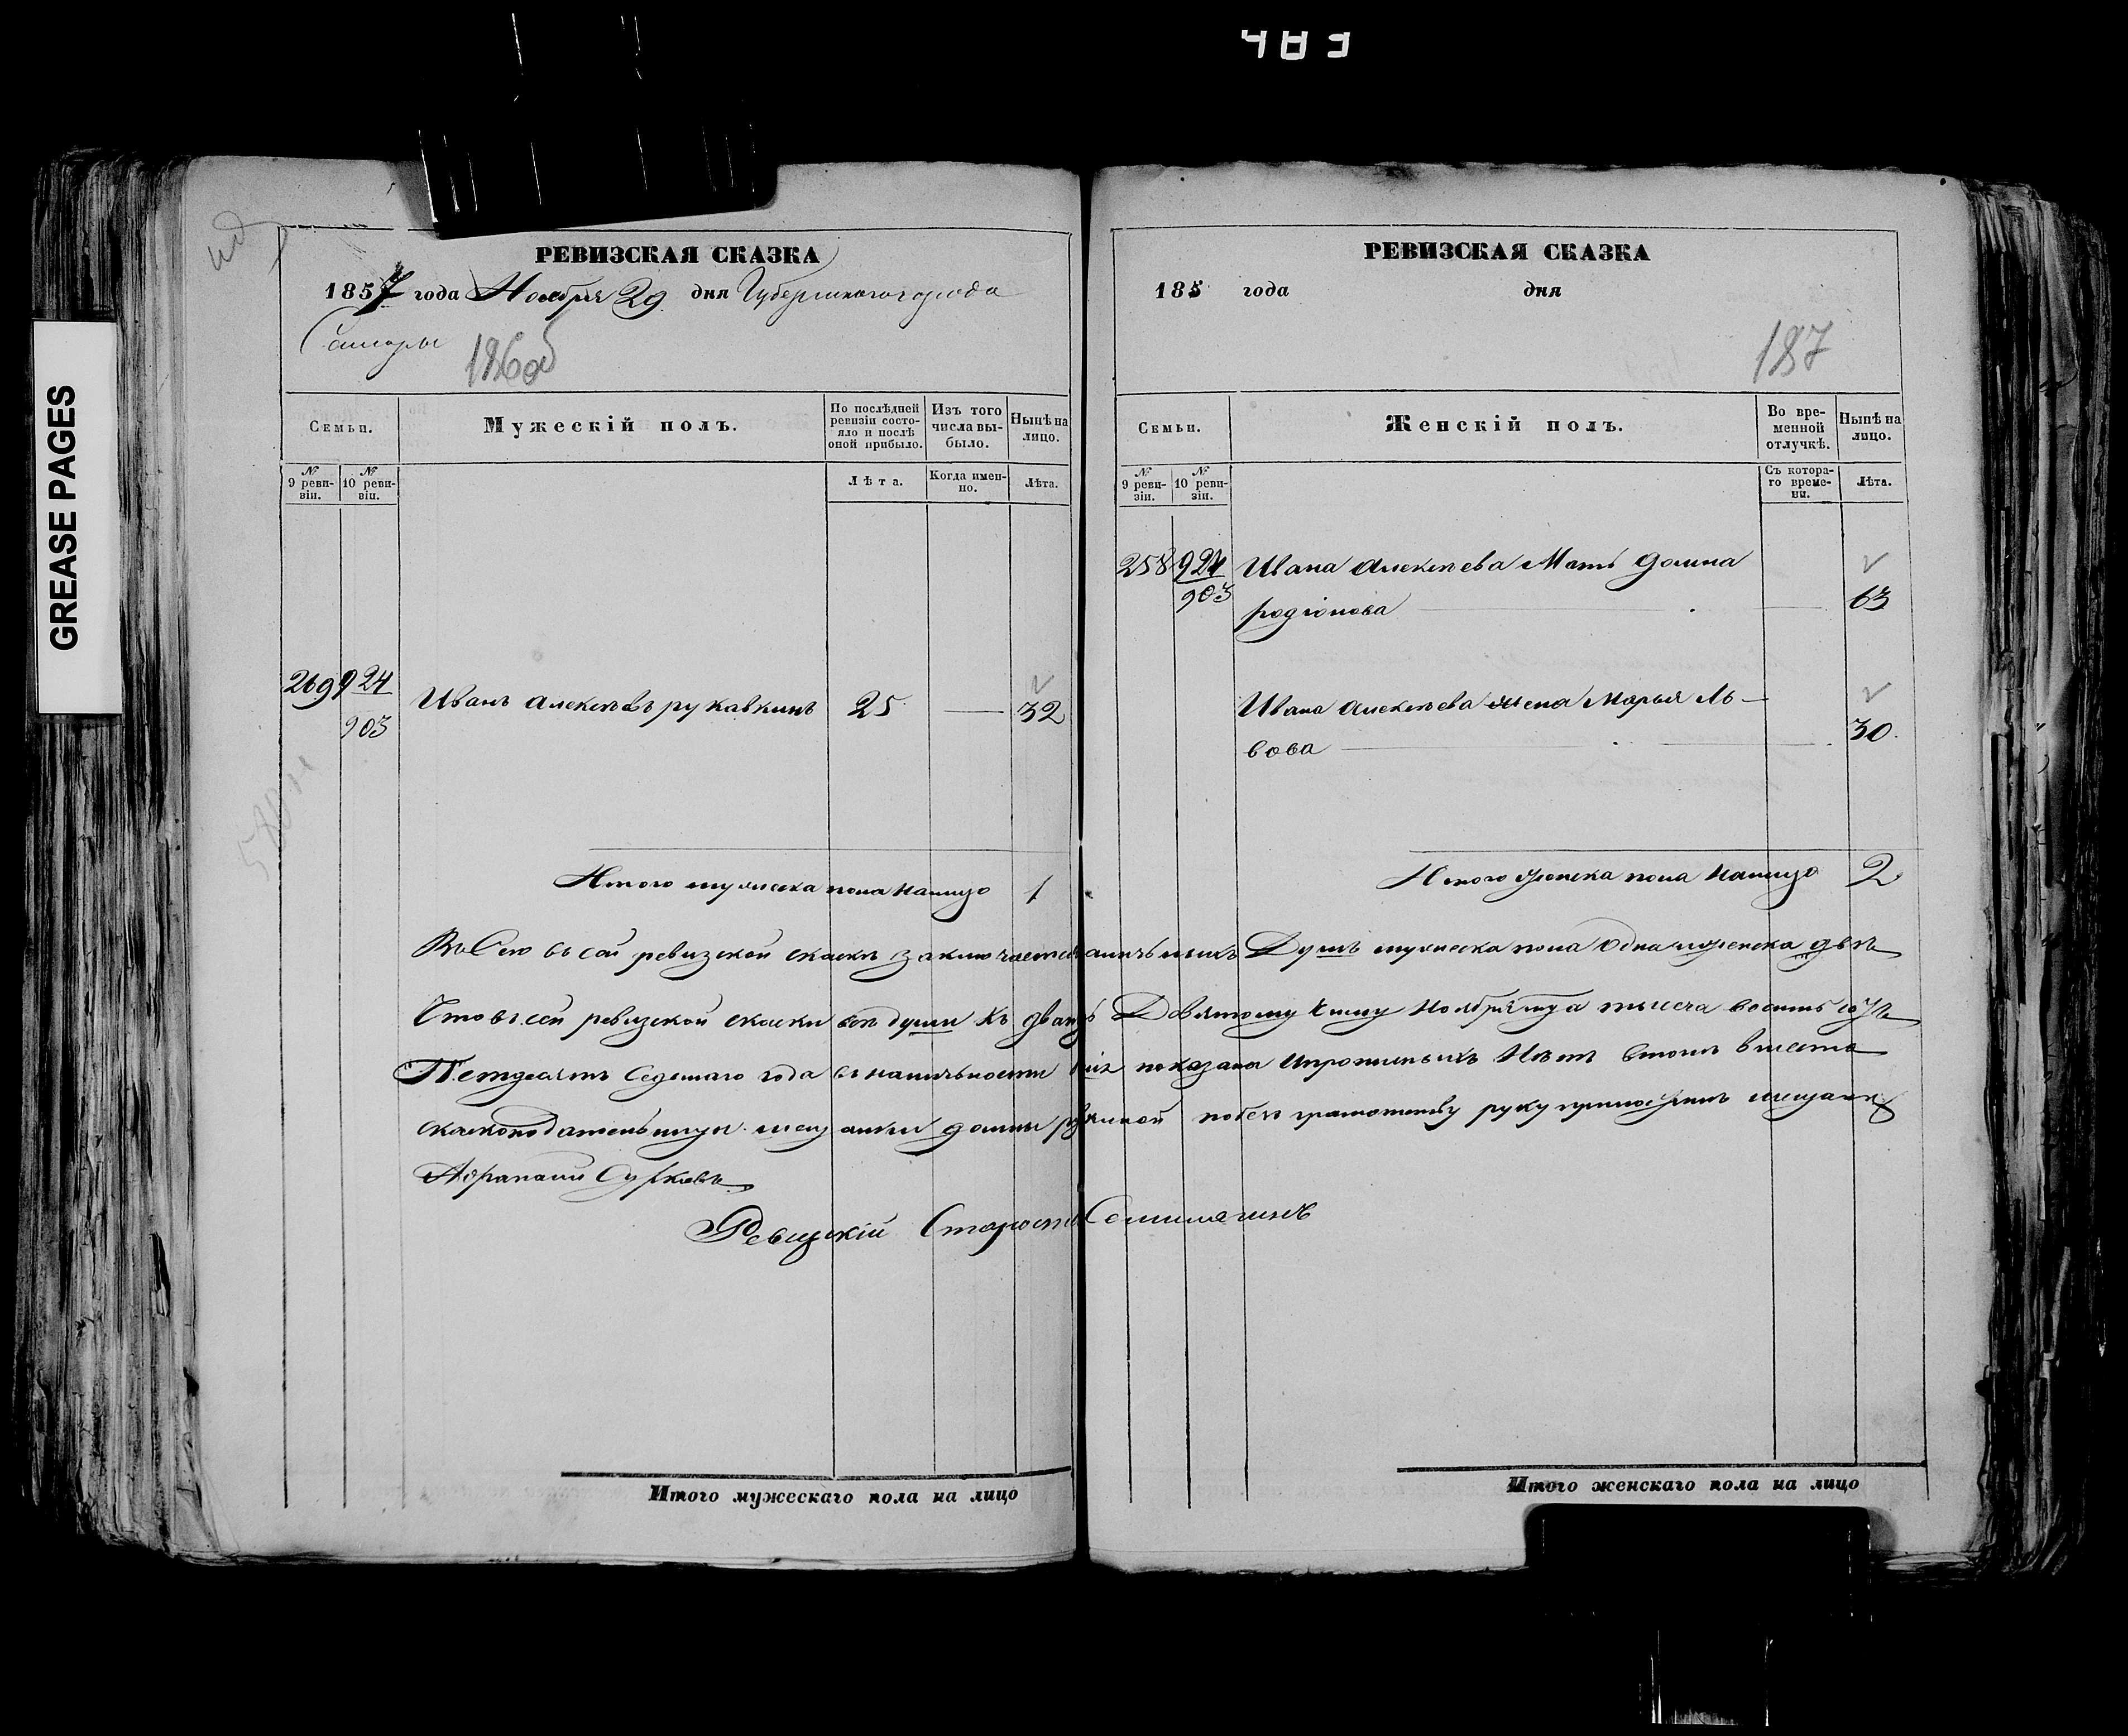 483
GREASE PAGES
РЕВИЗСКАЯ СКАЗКА
1857 года Ноября 29 дня Губернскаго города
Самары
186об
Семьи.
Мужескій полъ.
По послѣдней ревизіи состояло и послѣ оной прибыло.
Изъ того числа выбыло.
Нынѣ на лицо.
№ 9 ревизіи.
№ 10 ревизіи.
Лѣта.
Когда именно.
Лѣта.
269 924 Иванъ Алексѣевъ рукавкинъ 25 — 32
903
Итого мужеска пола налицо 1
РЕВИЗСКАЯ СКАЗКА
185 года дня
187
Семьи.
Женскій полъ.
Во временной отлучкѣ.
Нынѣ на лицо.
№ 9 ревизіи.
№ 10 ревизіи.
Съ котораго времени.
Лѣта.
258 924 Ивана Алексѣева Мать Домна
903 родіонова 63
Ивана Алексѣева жена Марья Ль-
вова 30
Итого женска пола налицо 2
въ сей ревизской скаскѣ заключается наличныхъ Душъ мужеска пола одна женска двѣ
Что въ сей ревизской скаски всѣ души къ двадцать Девятому числу Ноября тысеча восемь сотъ
Петдесятъ Седьмаго года въ наличности показаны ипрописныхъ Нѣтъ вместо
мещанки домны руку приложилъ мещанинъ
Сурковъ
Ревизскій Староста
Итого мужескаго пола на лицо
Итого женскаго пола на лицо